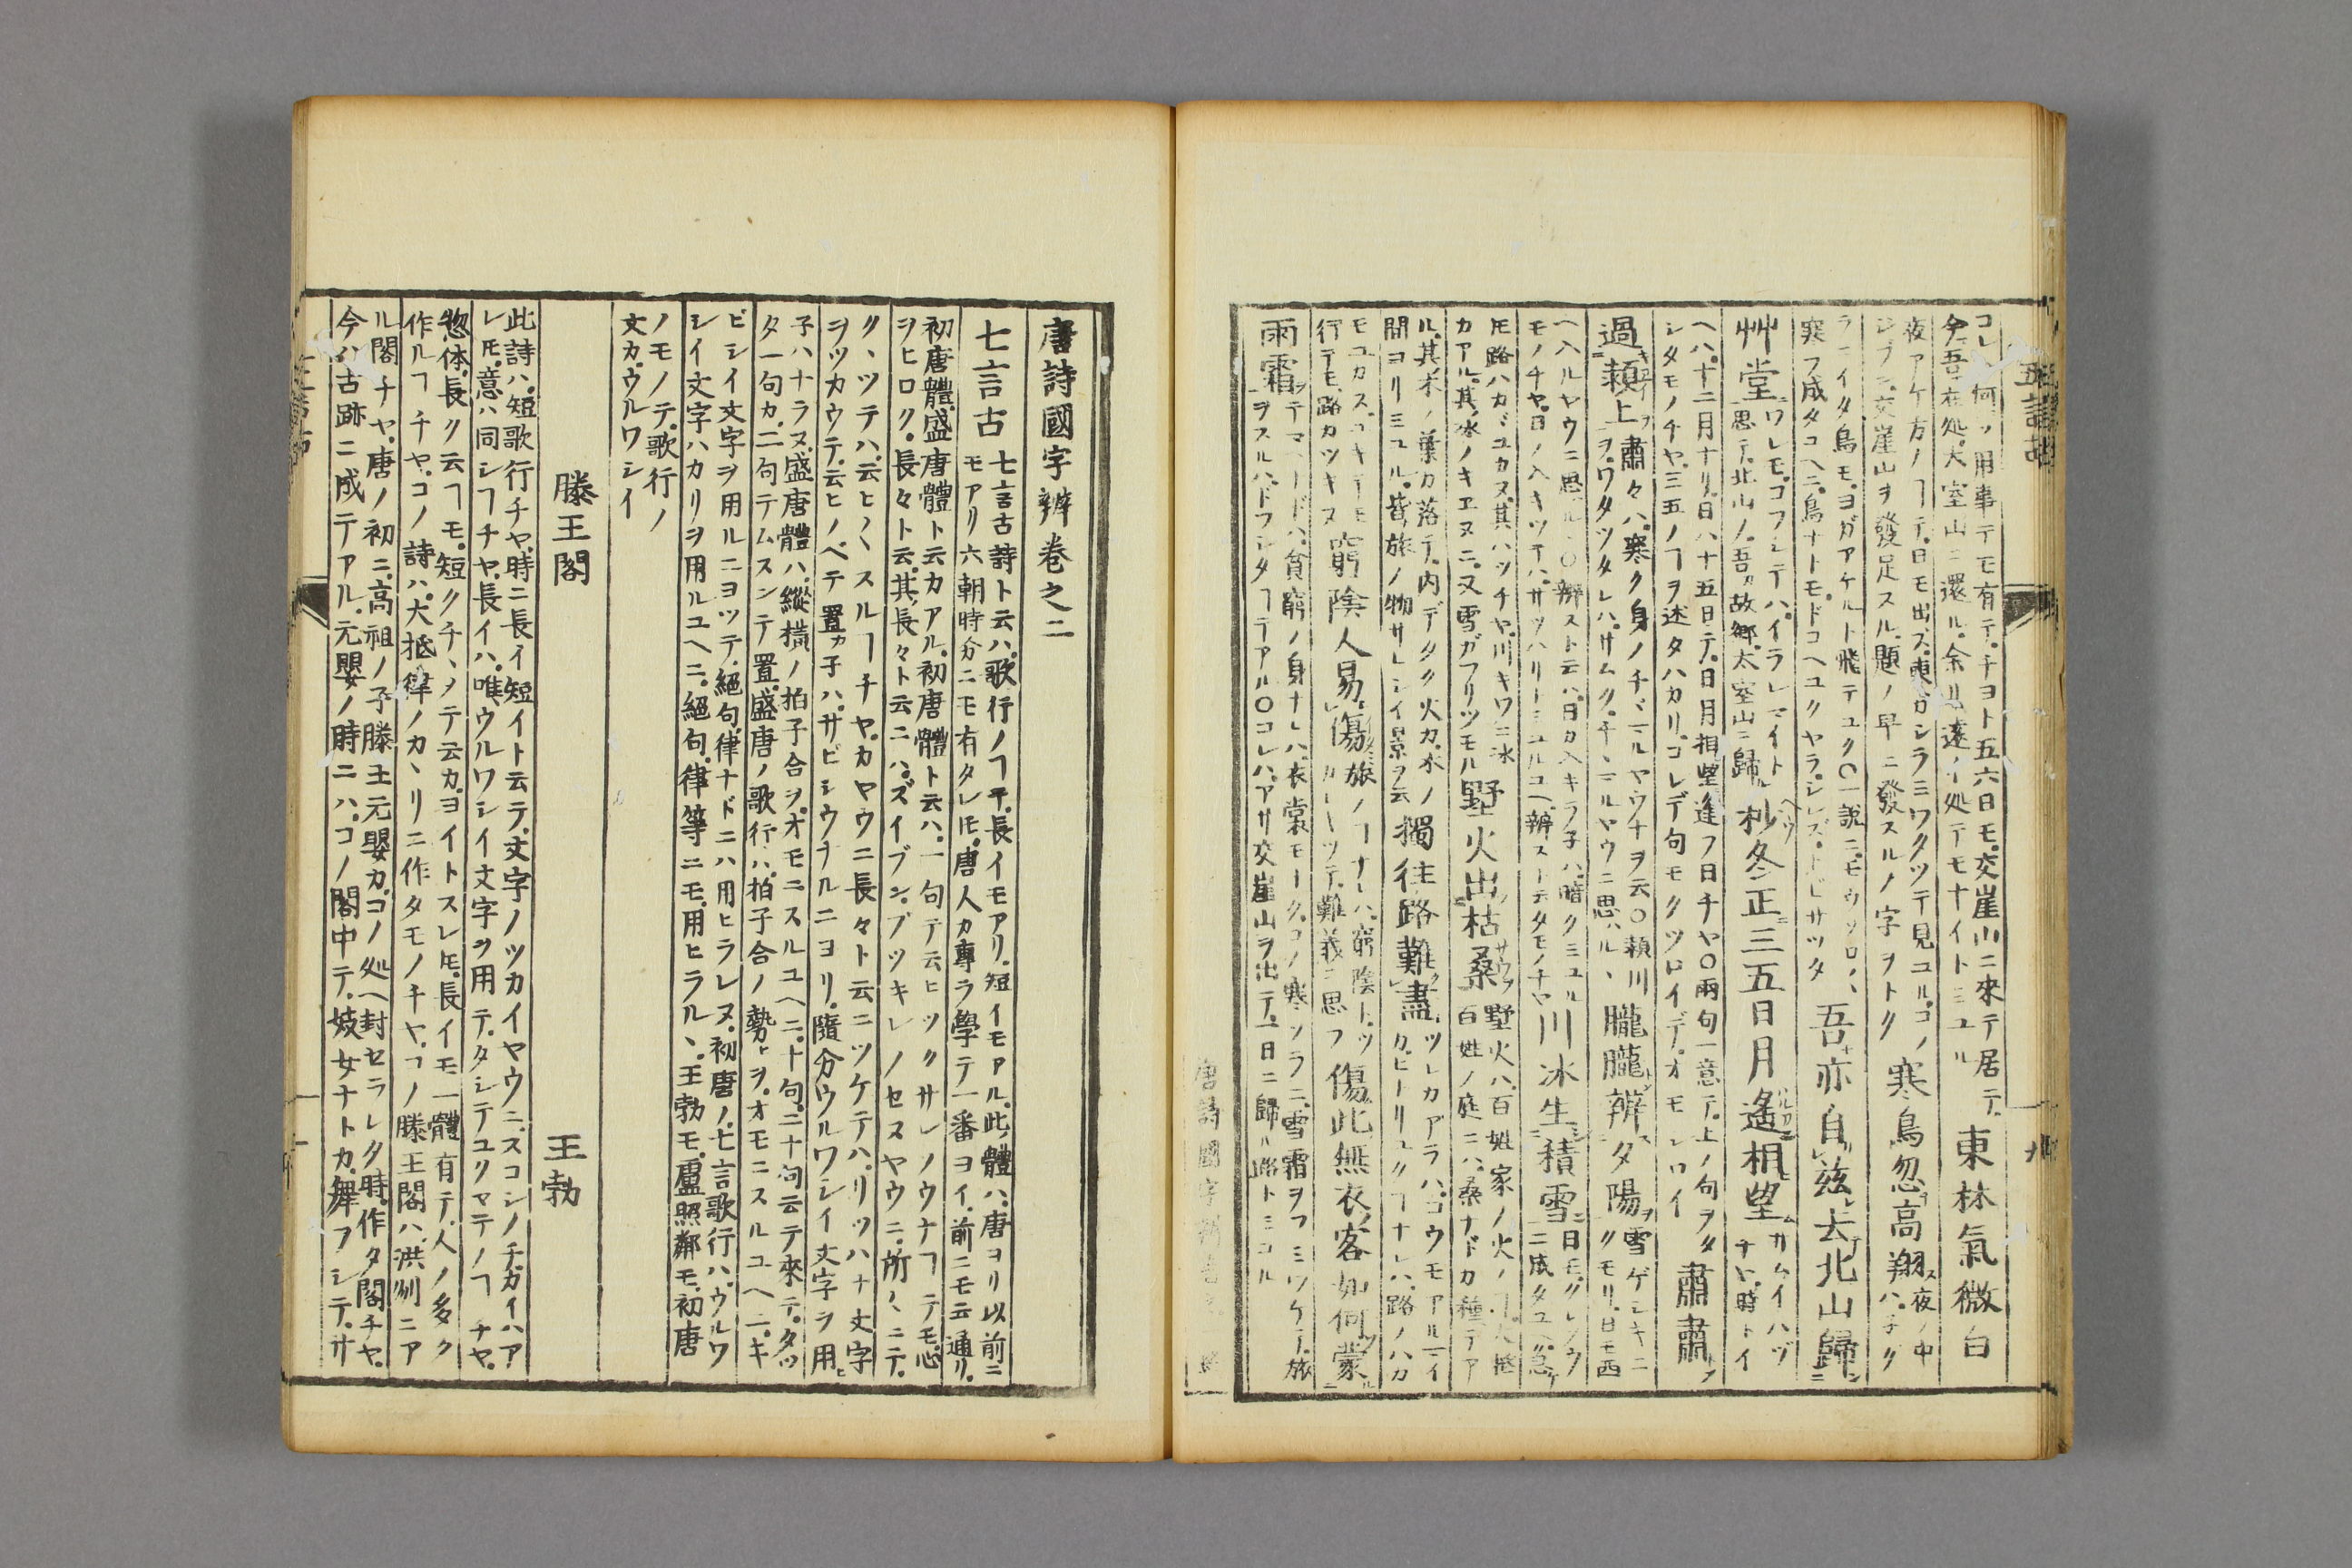 コレハ何ソ用事テモ有テ、チヨト五六日モ、交崖山ニ來テ居テ、
今吾在処、大室山ニ還ル、余リ遠イ処テモナイトミユル
東林氣微白
夜アケ方ノヿテ、日モ出ズ、東カシラミワタツテ見ユル、コノ
ジブン、交崖山ヲ發足スル、題ノ早ニ發スルノ字ヲトク
寒鳥忽高翔
夜ノ中
ハ、子ク
ライタ鳥モ、ヨガアケルト飛テユク〇一説ニ、モウソロ〳〵
寒フ成タユヘニ、鳥ナトモ、ドコヘユクヤラ、シレズ、トビサツタ
吾亦自茲去北山歸
艸堂
ワレモ、コフシテハ、イラレマイト
思テ、北山ノ、吾カ故郷、太室山ニ歸ル
杪冬正三五日月遙相望
サムイハヅ
チヤ、時トイ
ヘハ、十二月ナリ、日ハ十五日テ、日月相望逢フ日チヤ〇兩句一意テ、上ノ句ヲタ
シタモノチヤ、三五ノヿヲ述タハカリ、コレデ句モクツロイデ、オモシロイ
肅肅
過潁上
肅々ハ、寒ク身ノチヾミルヤウナヲ云〇潁川
ヲ、ワタツタレハ、サムク、チヾミルヤウニ思ハル、
朧朧辨夕陽
雪ゲシキニ
クモリ、日モ西
ヘ入ルヤウニ思ハル、〇辨スト云ハ、日カ入キラ子ハ、暗クミユル
モノチヤ、日ノ入キツテハ、サツハリトミユルユヘ、辨スト云タモノチヤ
川冰生積雪
日モ、クレソウ
ニ成タユヘ、急ケ
𪜈路ハカヾユカヌ、其ハツチヤ、川キワニ氷
カアル、其氷ノキエヌニ、又雪ガフリツモル
墅火出枯桑
墅火ハ、百姓家ノ火ノヿ、大躰
百姓ノ庭ニハ、桑ナドカ種テア
ル、其禾ノ葉カ落テ、内デタク火カ、木ノ
間ヨリミユル、皆旅ノ物サヒシイ景ヲ云
獨往路難盡
ツレカアラハ、コウモアルマイ
カ、ヒトリユクヿナレハ、路ノハカ
モユカス、ユキテモ
行テモ、路カツキヌ
窮陰人易傷
旅ノヿナレハ、窮陰トツ
カヽツテ、難義ニ思フ
傷此無衣客如何蒙
雨霜
テマヽードハ、貧窮ノ身ナレハ、衣裳モナク、コノ寒ソラニ、雪霜ヲフミワケテ、旅
ヲスルハ、ドフシタヿテアル〇コレハ、アサ交崖山ヲ出テ、一日ニ歸ル路トミユル
唐詩國字辨卷之二
七言古
七言古詩ト云ハ、歌行ノヿ乎、長イモアリ、短イモアル、此體ハ、唐ヨリ以前ニ
モアリ六朝時分ニモ有タレ𪜈、唐人カ專ラ學テ一番ヨイ、前ニモ云通リ、
初唐體、盛唐體ト云カアル、初唐體ト云ハ、一句テ云ヒツクサレソウナヿテモ、心
ヲヒロク、長々ト云、其長々ト云ニハ、ズイブン、ブツキレノセヌヤウニ、所〳〵ニテ、
ク、ツテハ、云ヒ〳〵スルヿチヤ、カヤウニ長々ト云ニツケテハ、リツハナ文字
ヲツカウテ、云ヒノベテ置カ子ハ、サビシウナルニヨリ、隨分ウルワシイ文字ヲ用ヒ
子ハナラヌ、盛唐體ハ、縱橫ノ拍子合ヲ、オモニスルユヘニ、十句、二十句云テ來テ、タツ
タ一句カ、二句テムスンテ置、盛唐ノ歌行ハ、拍子合ノ勢トヲ、オモニスルユヘニ、キ
ビシイ文字ヲ用ルニヨツテ、絕句、律ナドニハ用ヒラレヌ、初唐ノ七言歌行ハ、ウルワ
シイ文字ハカリヲ用ルユヘニ、絕句、律等ニモ、用ヒラル、王勃モ、盧照鄰モ、初唐
ノモノテ、歌行ノ
文カ、ウルワシイ
滕王閣 王勃
此詩ハ、短歌行チヤ、時ニ長イ短イト云テ、文字ノツカイヤウニ、スコシノチカイハア
レ𪜈、意ハ同シヿチヤ、長イハ、唯ウルワシイ文字ヲ用テ、タシテユクマテノヿチヤ、
惣体、長ク云ヿモ、短クチヽメテ云カ、ヨイトスレ𪜈、長イモ一體有テ、人ノ多ク
作ルヿチヤ、コノ詩ハ、大抵律ノカヽリニ作タモノチヤ、コノ滕王閣ハ、洪州ニア
ル閣チヤ、唐ノ初ニ、高祖ノ子滕王元嬰カ、コノ処ヘ封セラレタ時、作タ閣チヤ、
今ハ古跡ニ成テアル、元嬰ノ時ニハ、コノ閣中テ、妓女ナトカ、舞フシテ、サ